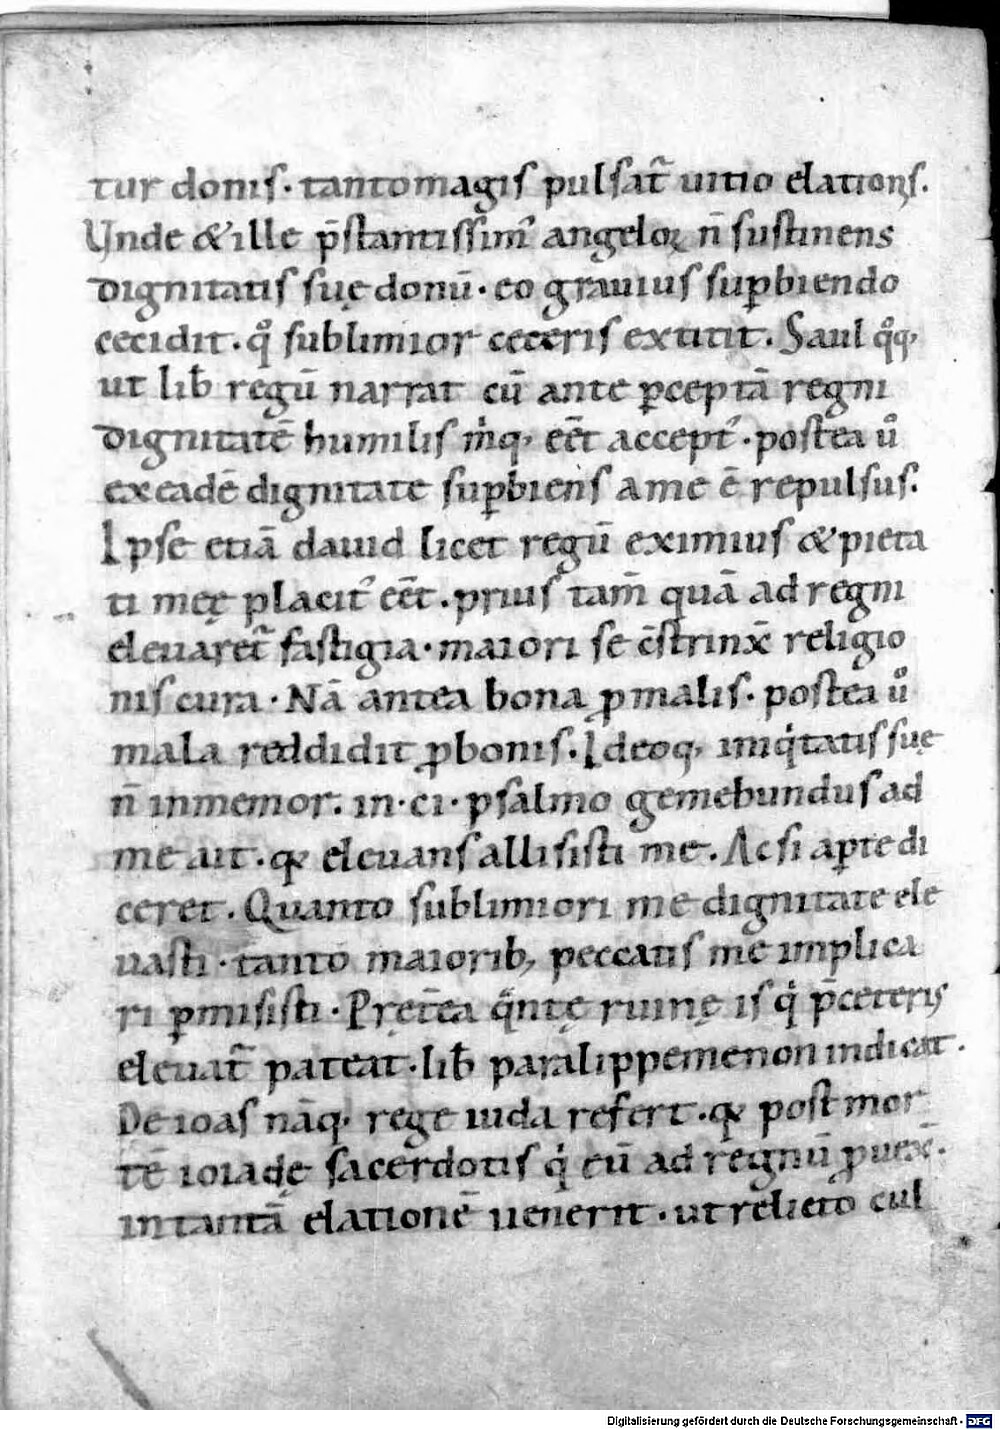 tur donis · tanto magis pulsat᷑ uitio elationis.
Unde & ille p̄stantissim᷒ angeloꝝ n̄ sustinens
dignitatis suę donū · eo grauius suꝑbiendo
cecidit · qͦ sublimior ceteris extitit. Saul qͦq;
ut lib̄ regū narrat cū ante ꝑceptā regni
dignitatē humilis m̄q; eēt accept᷒ · postea uͦ
ex eadē dignitate suꝑbiens a me ē repulsus.
Ipse etiā dauid licet regū eximius & pieta
ti meę placit᷒ eēt · prius tam̄ quā ad regni
eleuaret᷑ fastigia · maiori se c̄strinx̄ religio
nis cura · Nā antea bona ꝓ malis · postea uͦ
mala reddidit ꝓ bonis. Ideoq; iniqͥtatis suę
n̄ inmemor. in · ci · psalmo gemebundus ad
me ait · qꝫ eleuans allisisti me. Ac si aꝑte di
ceret. Quanto sublimiori me dignitate ele
uasti · tanto maiorib; peccatis me implica
ri ꝑmisisti · Pręt̄ea qͣntę ruinę is qͥ p̄ceteris
eleuat᷑ pateat · lib̄ paralippemenon indicat.
De ioas nāq; rege iuda refert · qꝫ post mor
tē ioiadę sacerdotis qͥ eū ad regnū ꝓuex̄.
in tantā elationē uenerit · ut relicto cul
Digitalisierung gefördert durch die Deutsche Forschungsgemeinschaft - DFG